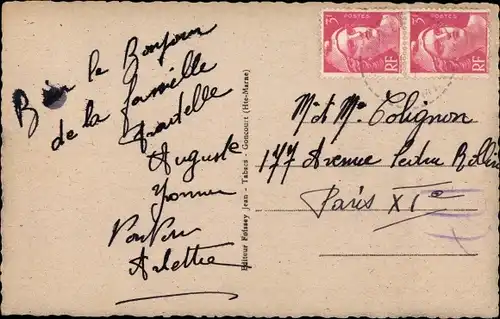 Bien le Bonjour
de la famille
Auguste
Yvonne
Arlette
Editeur Foissey Jean - Tabacs - Goncourt (Hte-Marne)
3F POSTES RF
3F POSTES RF
M et Me Colignon
177 Avenue Ledru Rollin
Paris XIe